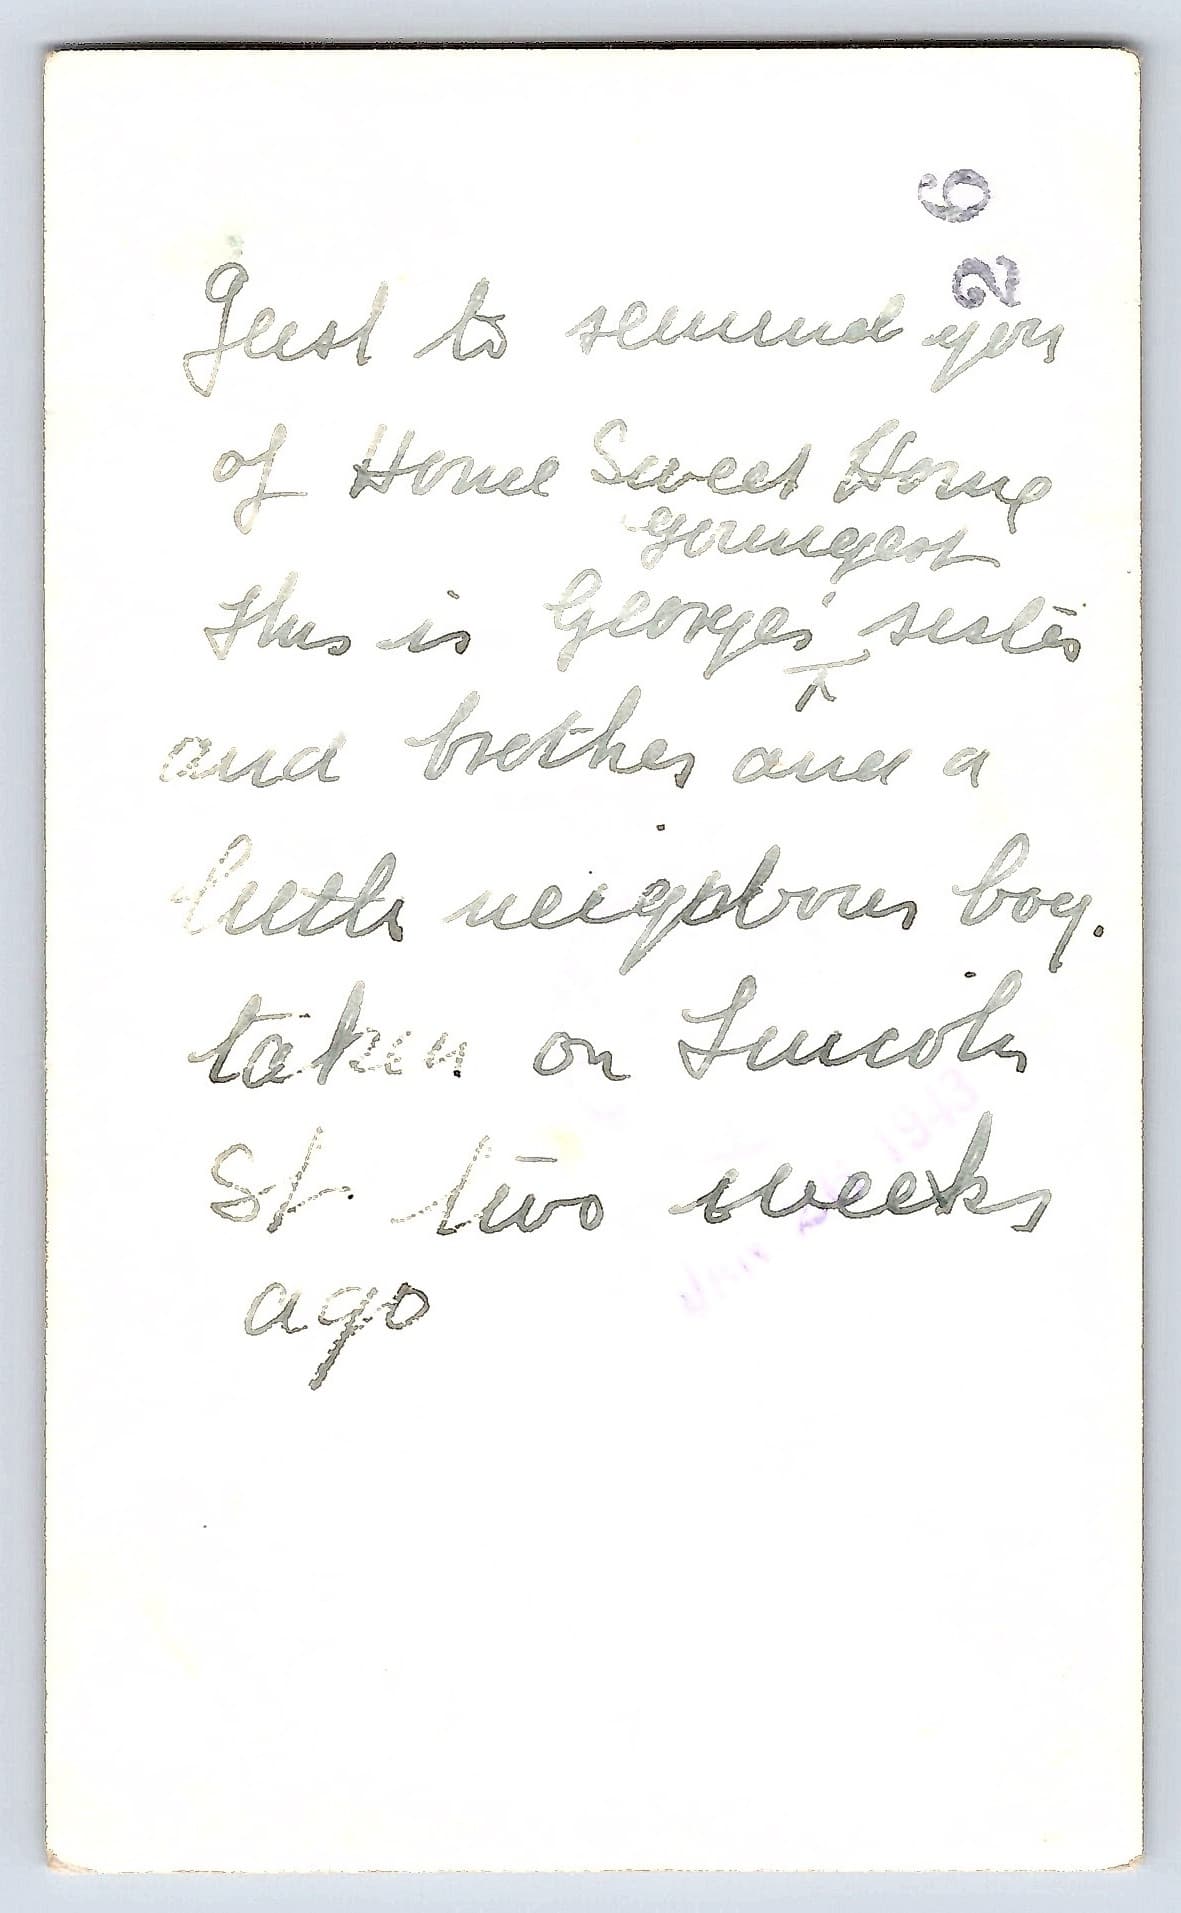 26
Just to remind you
of Home Sweet Home
youngest
This is George's sister
and brother and a
little neighbour boy.
taken on Lincoln
St. two weeks
ago
1943